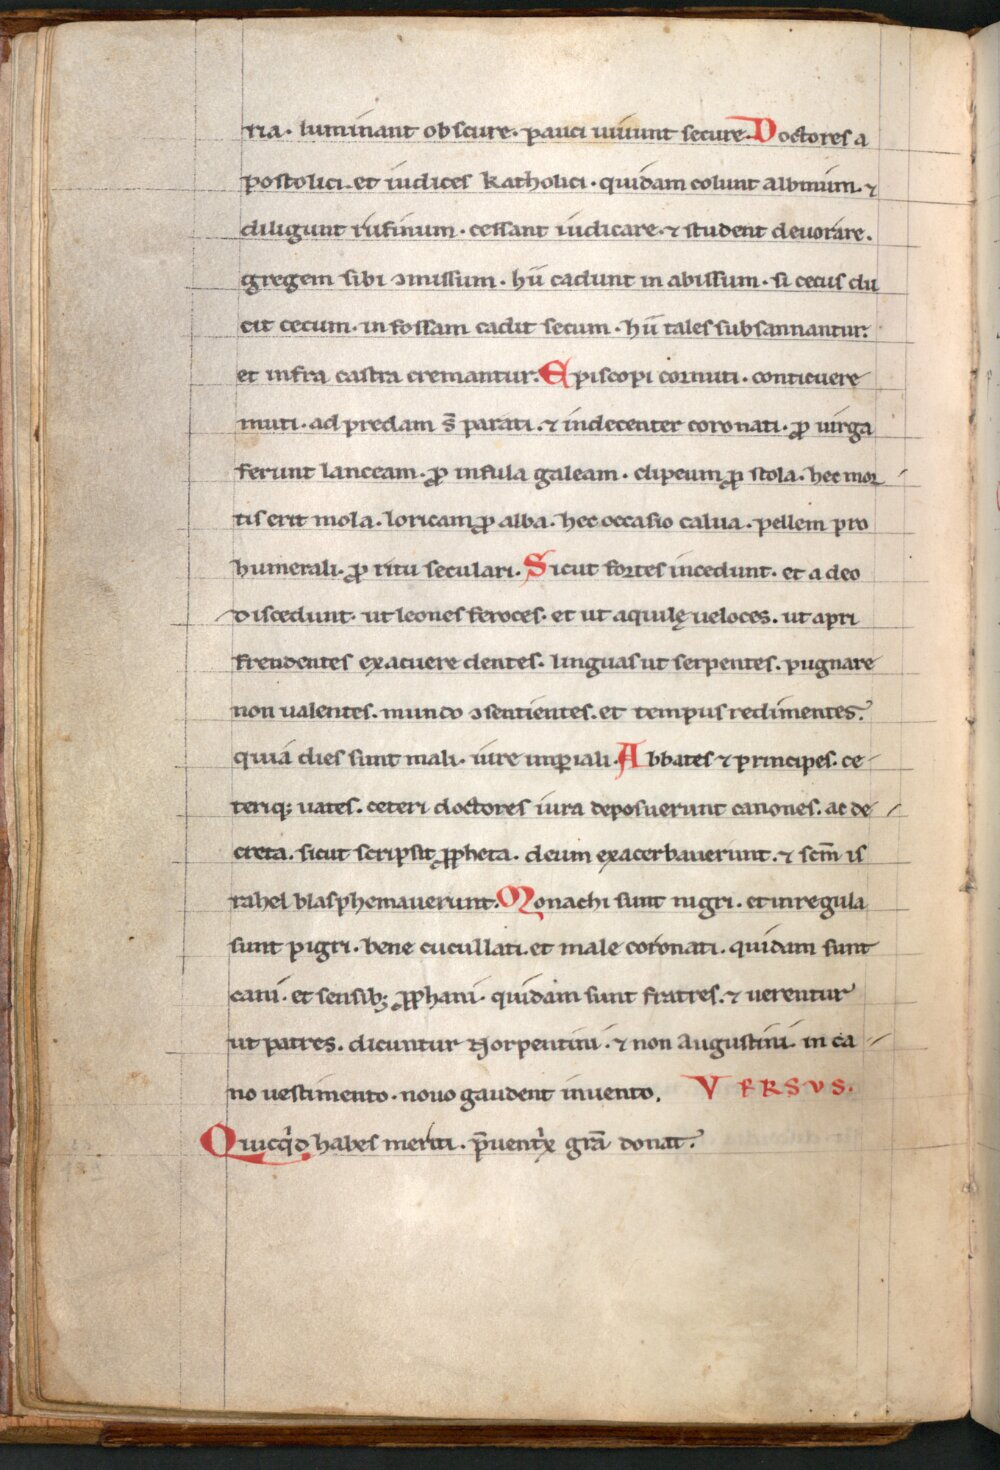 ria. luminant obscure. pauci uiuunt secure. Doctores a
postolici. et iudices katholici. quidam colunt albinum. ⁊
diligunt rufinum. cessant iudicare. ⁊ student deuorare.
gregem sibi ↄmissum. hii cadunt in abissum. si cecus du
cit cecum. in fossam cadit secum. hii tales subsannantur.
et infra castra cremantur. Episcopi cornuti. conticuere
muti. ad predam s̄ parati. ⁊ indecenter coronati. ꝓ uirga
ferunt lanceam. ꝓ infula galeam. clipeum ꝓ stola. hec mor
tis erit mola. loricam ꝓ alba. hec occasio calua. pellem pro
humerali. ꝓ ritu seculari. Sicut fortes incedunt. et a deo
discedunt. ut leones feroces. et ut aquilę ueloces. ut apri
frendentes exacuere dentes. linguas ut serpentes. pugnare
non ualentes. mundo ↄsentientes. et tempus redimentes.
quia dies sunt mali. iure imꝑiali. Abbates ⁊ principes. ce
teriq; uates. ceteri doctores iura deposuerunt canones. ac de
creta. sicut scripsit ꝓpheta. deum exacerbauerunt. ⁊ scm̄ is
rahel blasphemauerunt. Monachi sunt nigri. et in regula
sunt pigri. bene cucullati. et male coronati. quidam sunt
cani. et sensib; ꝓphani. quidam sunt fratres. ⁊ uerentur
ut patres. dicuntur Norpentini. ⁊ non augustini. in ca
no uestimento. nouo gaudent inuento. VERSVS.
Quicq̇d habes meriti. p̄uentͥx gr̄a donat.